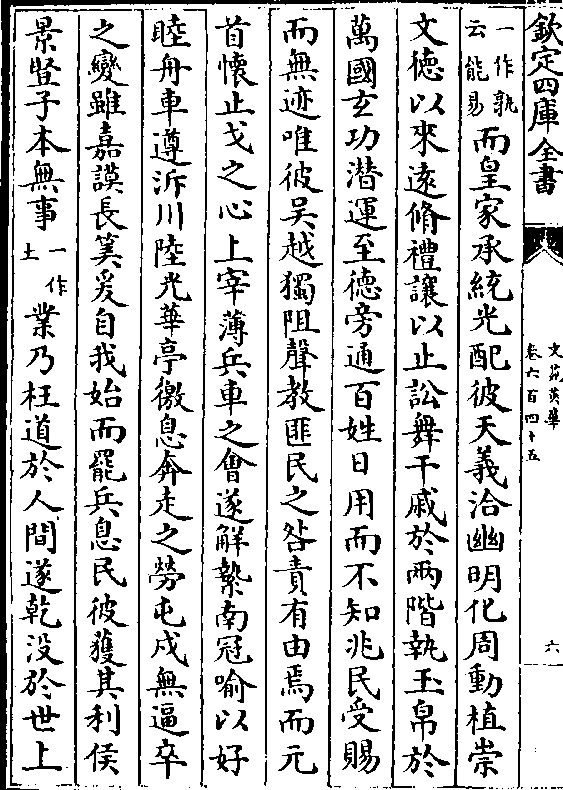 欽定四庫全書
文苑英華
卷六百四十五
六
一作孰
云能易
而皇家承統光配彼天義洽幽明化周動植崇
文德以來遠脩禮讓以止訟舞干戚於兩階執玉帛於
萬國玄功潜運至德旁通百姓日用而不知兆民受賜
而無迹唯彼吴越獨阻聲教匪民之咎責有由焉而元
首懷止戈之心上宰薄兵車之會遂解縶南冠喻以好
睦舟車遵泝川陸光華亭徼息奔走之勞屯戍無逼卒
之變雖嘉謨長筭爰自我始而罷兵息民彼獲其利侯
景豎子本無事
一作
士
業乃枉道於人間遂乾没於世上